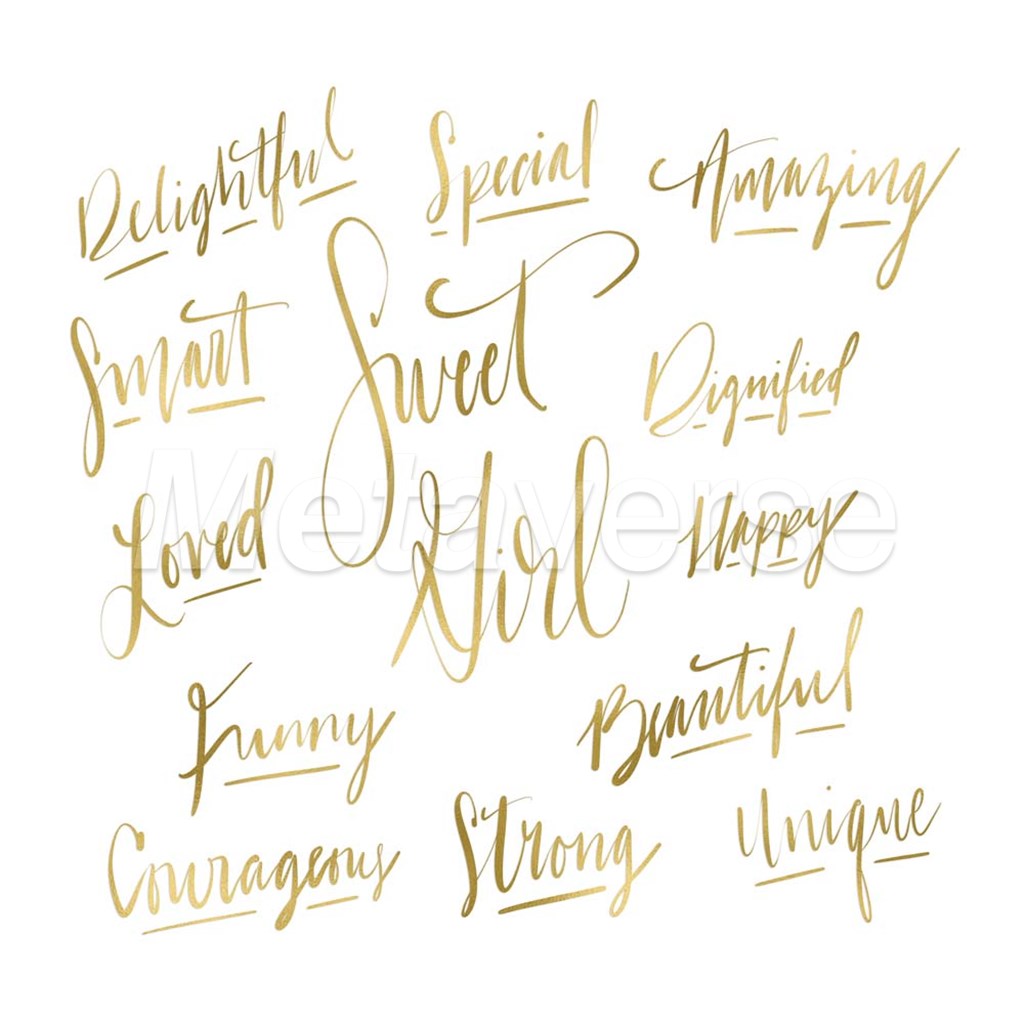 Delightful
Special
Amazing
Smart
Sweet
Dignified
Loved
Girl
Happy
Metaverse
Funny
Beautiful
Courageous
Strong
Unique